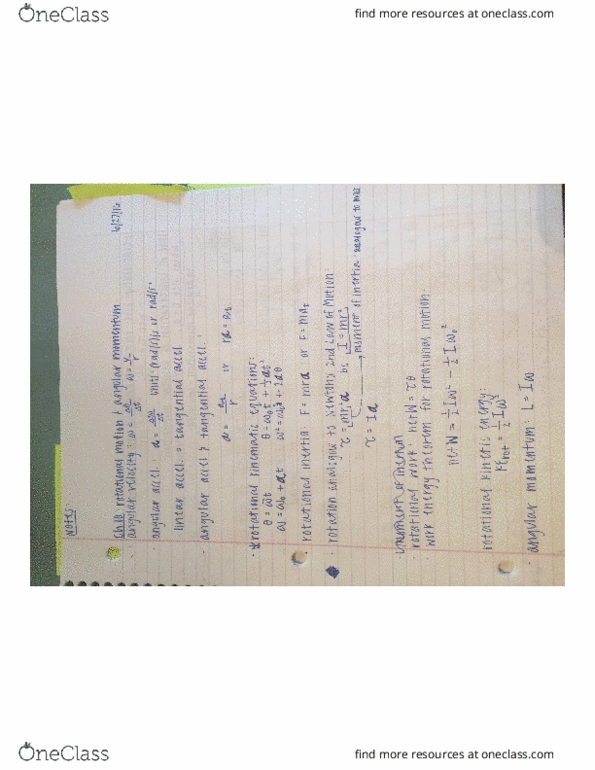 OneClass
find more resources at oneclass.com
NOTES:
6/27/16
Ch.10 rotational motion & angular momentum
angular velocity: ω = Δθ/Δt ω = v/r
angular accel. α = Δω/Δt units (rad/s)/s or rad/s²
linear accel. = tangential accel
· angular accel & tangential accel.:
α = at/r or rα = at
· *rotational kinematic equations:
θ = ω̄t θ = ω₀t + ½αt²
ω = ω₀ + αt ω² = ω₀² + 2αθ
· rotational inertia F = mrα or F = ma
· rotation analogue to Newton's 2nd Law of Motion
τ = mr²α bc I = mr²
→ moment of inertia analogous to mass
τ = Iα
· rotational work: net W = τθ
· work energy theorem for rotational motion:
net W = ½Iω² - ½Iω₀²
rotational kinetic energy:
KErot = ½Iω²
· angular momentum: L = Iω
OneClass
find more resources at oneclass.com